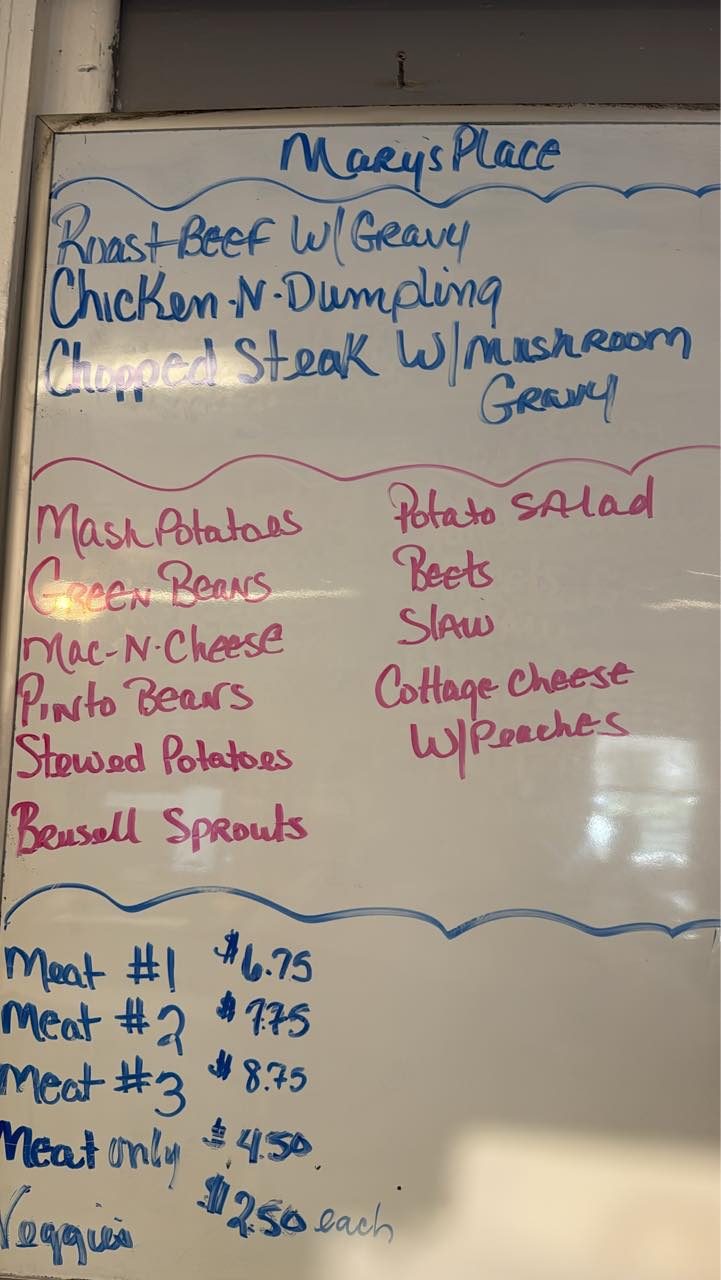 Mary's Place
Roast Beef W/ Gravy
Chicken-N-Dumpling
Chopped Steak W/ Mushroom
Gravy
Mash Potatoes
Green Beans
Mac-N-Cheese
Pinto Beans
Stewed Potatoes
Brusell Sprouts
Potato Salad
Beets
Slaw
Cottage Cheese
W/ Peaches
Meat #1 $6.75
Meat #2 $7.75
Meat #3 $8.75
Meat only $4.50
Veggies $2.50 each